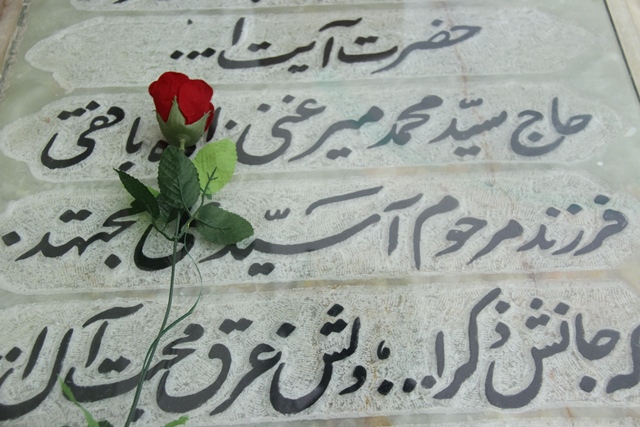 حضرت آیت ا...
حاج سیّد محمد میرغنی زاده بافقی
فرزند مرحوم آسیّد مجتهد
جانش ذکر ا...، دلش غرق محبت آل